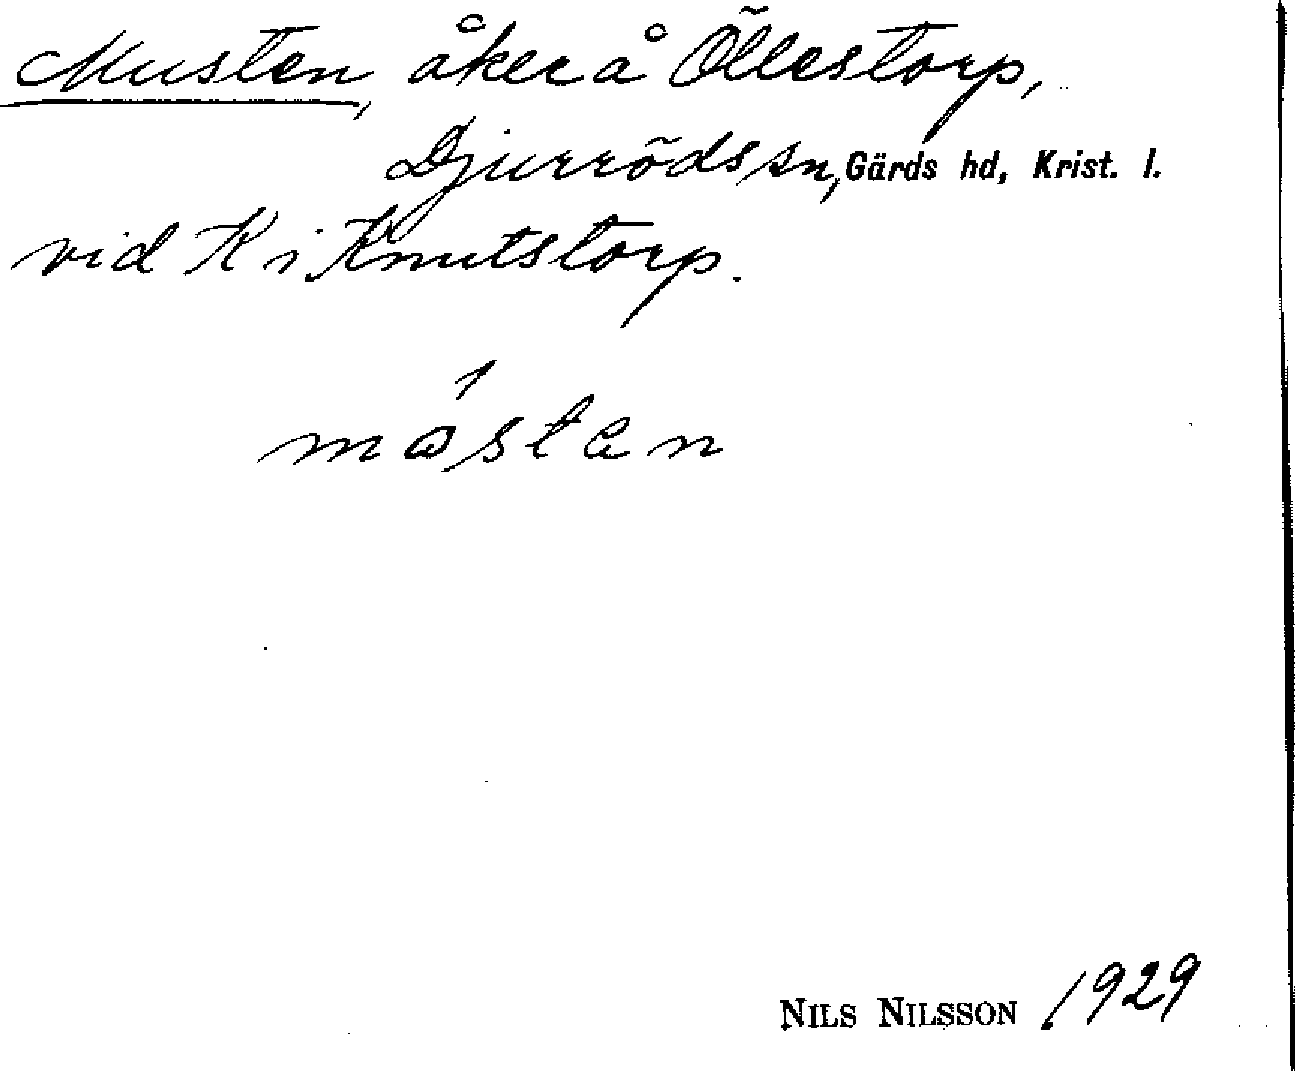 Musten, åker å Öllestorp,
Djurröds sn, Gärds hd, Krist. l.
vid K i Knutstorp.
mósten
NILS NILSSON 1929